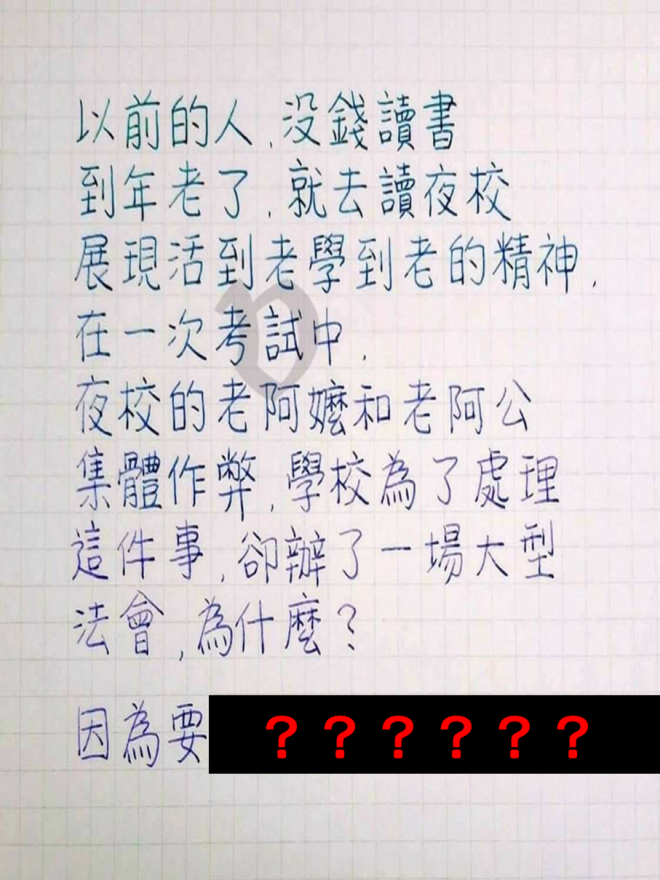 以前的人,没錢讀書
到年老了,就去讀夜校
展現活到老學到老的精神,
在一次考試中,
夜校的老阿嬤和老阿公
集體作弊,學校為了處理
這件事,卻辦了一場大型
法會,為什麼?
因為要??????